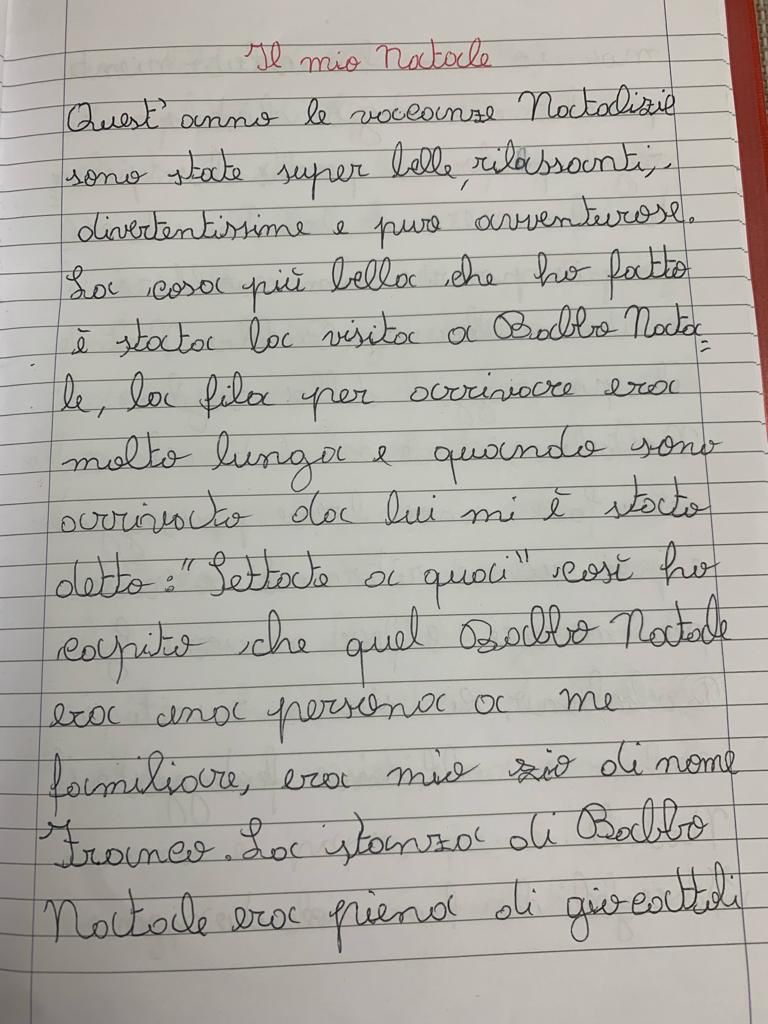 Il mio Natale
Quest'anno le vacanze Natalizie
sono state super belle, rilassanti,
divertentissime e pure avventurose.
La cosa più bella che ho fatto
è stata la visita a Babbo Nata=
le, la fila per arrivare era
molto lunga e quando sono
arrivato da lui mi è stato
detto: "Settate a quai" così ho
capito che quel Babbo Natale
era una persona a me
familiare, era mio zio di nome
Franco. La stanza di Babbo
Natale era piena di giocattoli